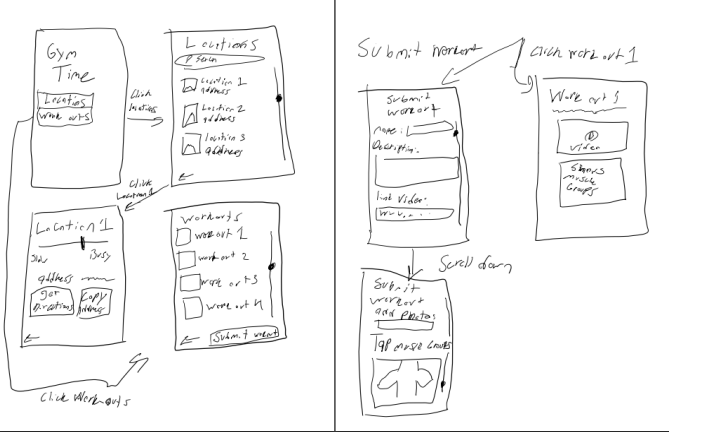 Gym
Time
Locations
Work outs
Click
locations
Locations
Search
Location 1
address
Location 2
address
location 3
address
Click
Location 1
Location 1
Slow
Busy
address
get
Directions
Copy
address
workouts
workout 1
workout 2
workout 3
workout 4
Submit workout
Click Workouts
Submit workout
click workout 1
Submit
workout
name:
Description:
link video:
Scroll down
Submit
workout
add photos
Tap muscle Groups
Workout 1
video
Shows
muscle
Groups